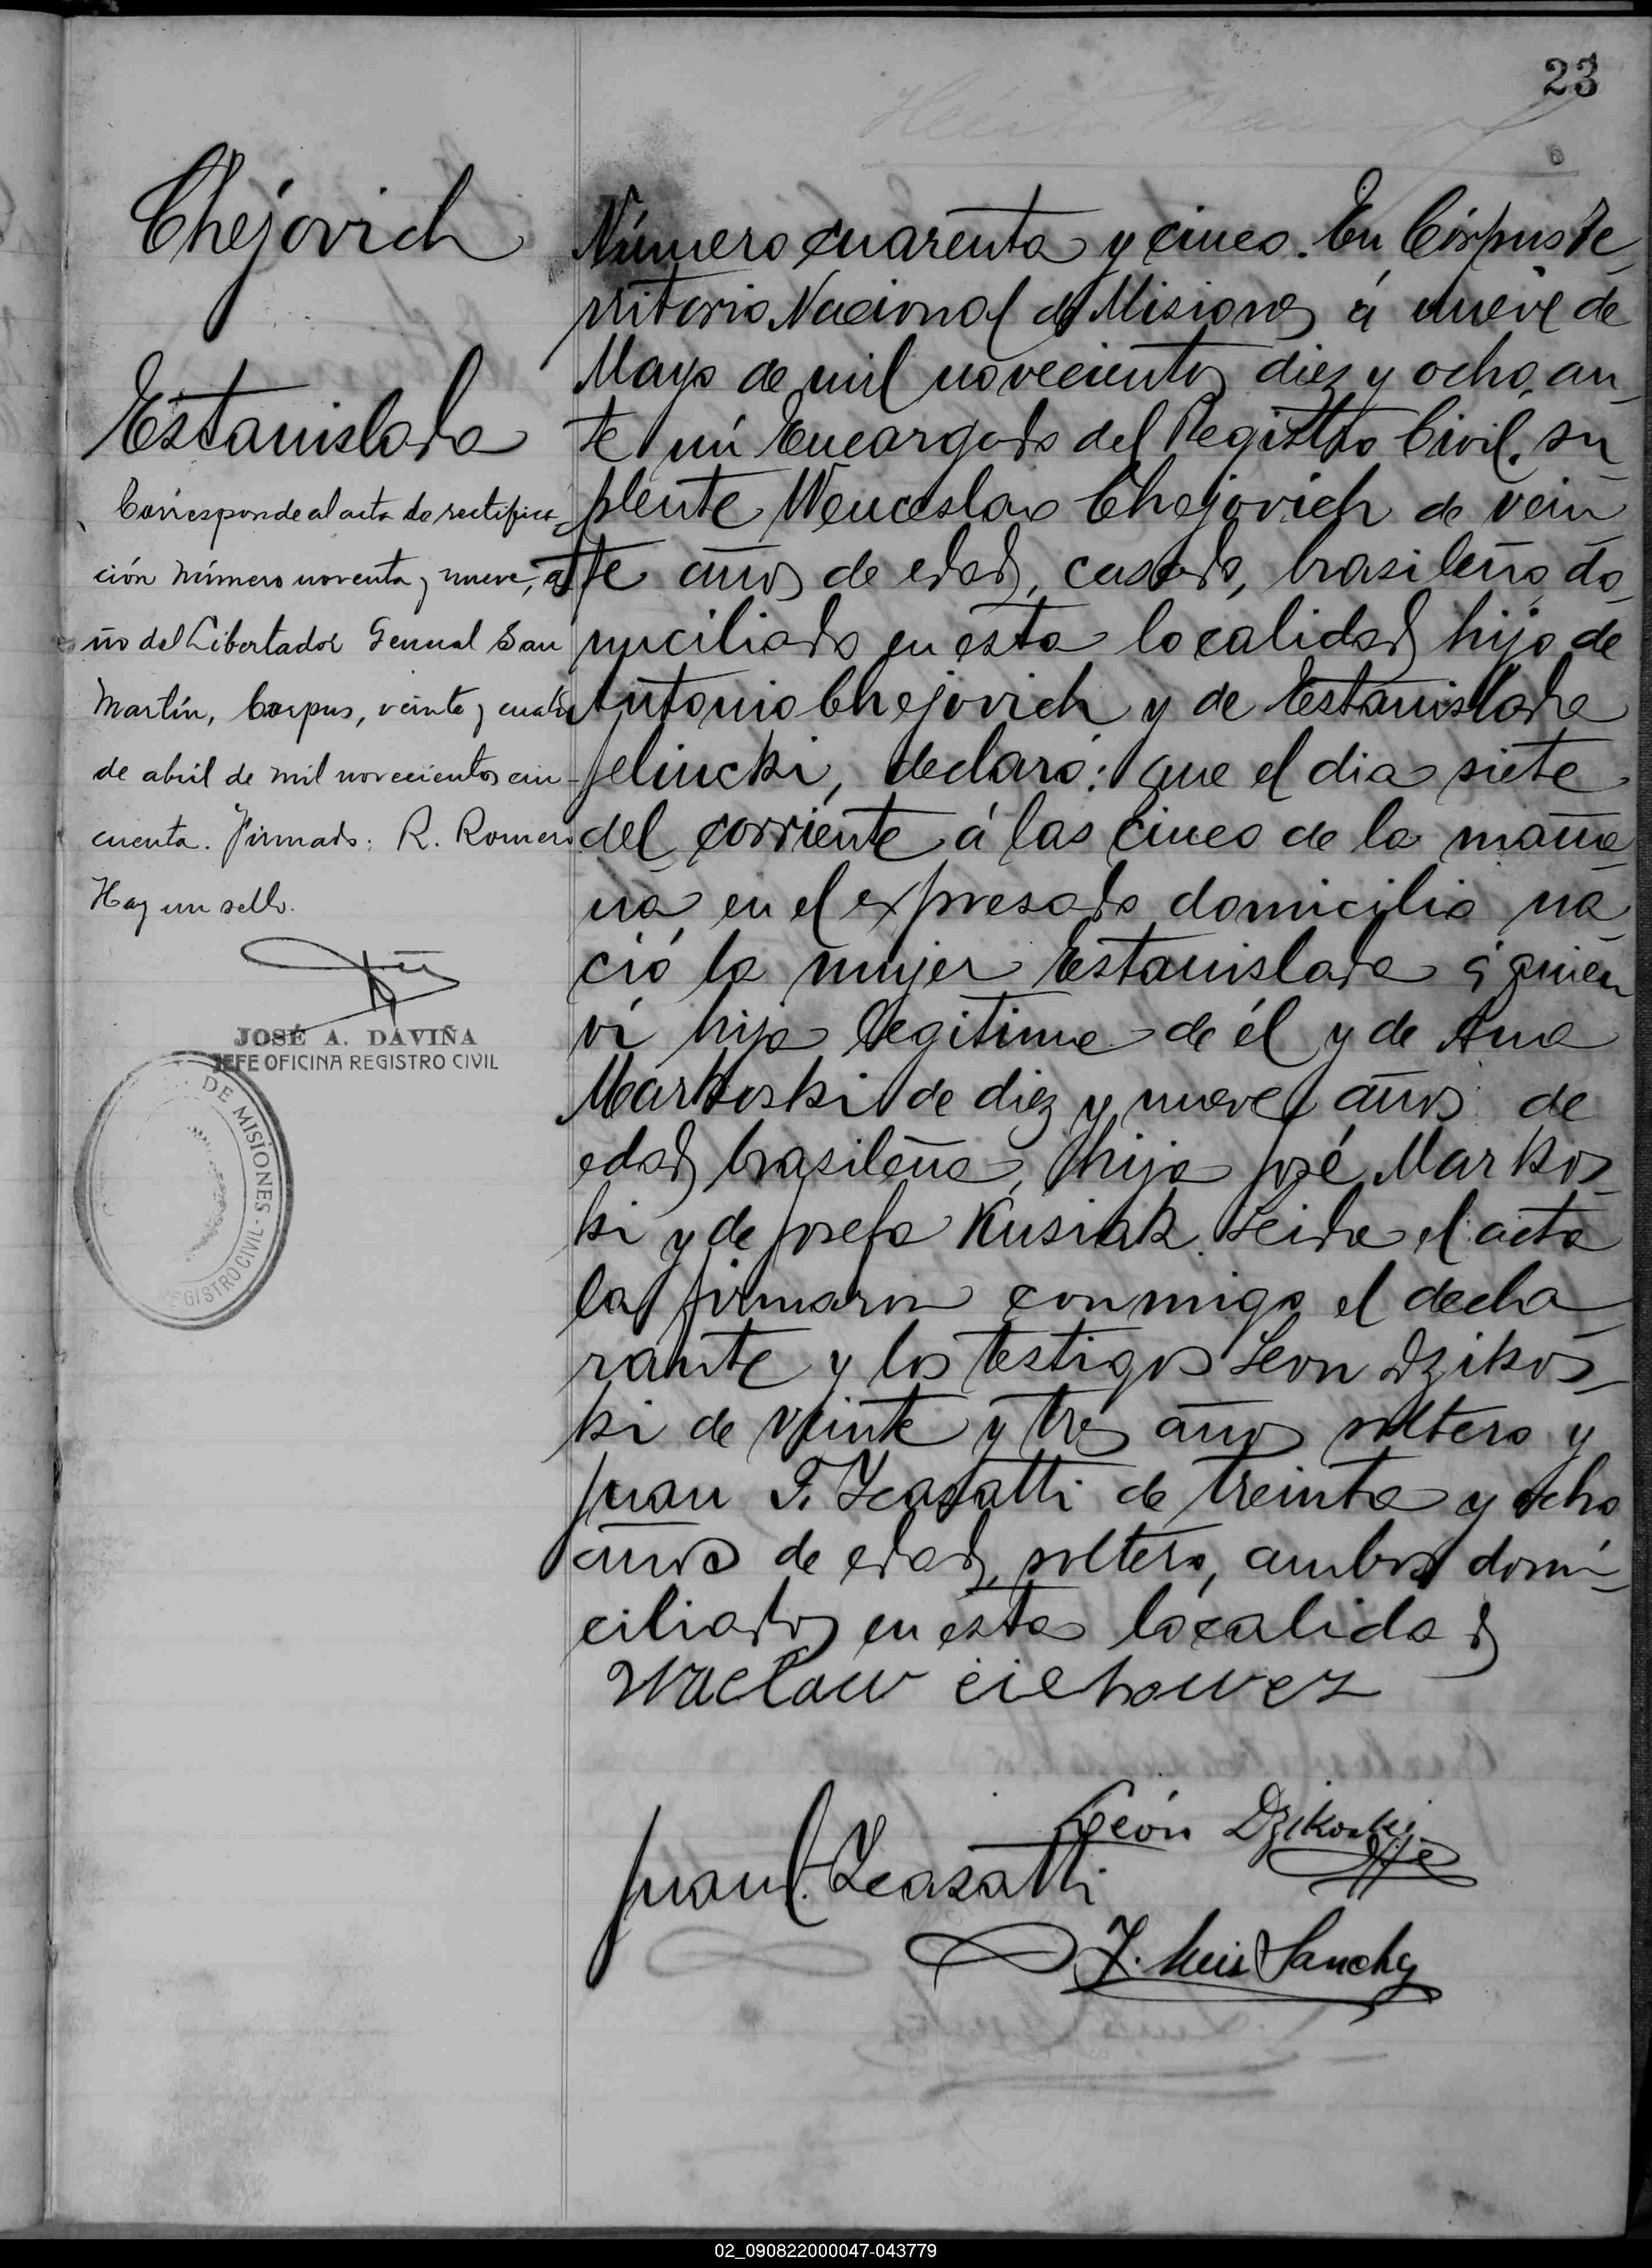 23
Chejovich
Estanislada
Corresponde al acta de rectifica-
ción número noventa y nueve, a-
ño del Libertador General San
Martín, Corpus, veinte y cuatro
de abril de mil novecientos cin-
cuenta. Firmado: R. Romero
Hay un sello.
JOSÉ A. DAVIÑA
JEFE OFICINA REGISTRO CIVIL
DE MISIONES - REGISTRO CIVIL
Número cuarenta y cinco. En Córpus te-
rritorio Nacional de Misiones á nueve de
Mayo de mil novecientos diez y ocho, an-
te mi Encargado del Registro Civil, su-
plente Wenceslao Chejovich de vein-
te años de edad, casado, brasileño, do-
miciliado en esta localidad hijo de
Antonio Chejovich y de Estanislada
Jelincki, declaró: que el dia siete
del corriente á las cinco de la maña-
na, en el expresado domicilio na-
ció la mujer Estanislada á quien
ví hija legitima de él y de Ana
Markoski de diez y nueve años de
edad brasileña, hija José Markos-
ki y de Josefa Kusiak. Leida el acta
la firmaron conmigo el decla-
rante y los testigos Leon Dzikos-
ki de veinte y tres años soltero y
Juan F. Leasatti de treinta y ocho
años de edad, soltero, ambos domi-
ciliados en esta localidad
Wacław
León Dzikoski
Juan F. Leasatti
J. Luis Sanchez
02_090822000047-043779